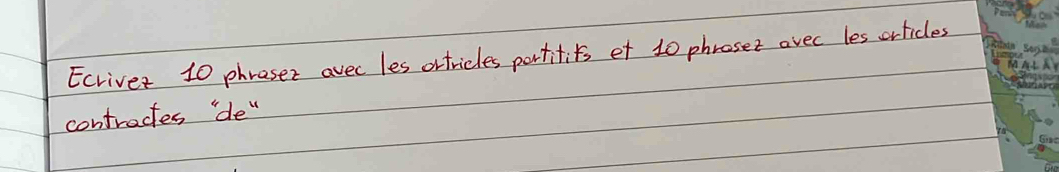 Ecrivez 10 phrasez avec les artricles partitifs et 10 phrasez avec les articles
contractes "de"
MALAY